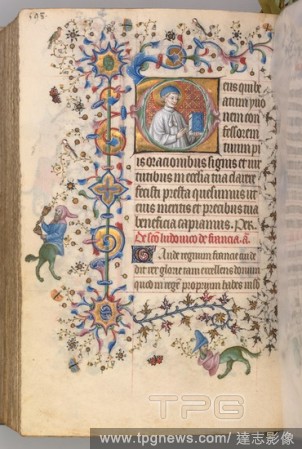 Deus qui be
atum yuo
nem con
fessorem
tuum pi
is oracionibus signis et uir
tutibus in ecclia tua clarere
fecisti presta quesumus ut
eius meritis et precibus tua
beneficia capiamus. Per.
De sco ludouico de francia. a.
Gaude regnum francie cui de
dit rex glorie tam excellens donum
quod in rege proprium habes
TPG
www.tpgnews.com/ 達志影像